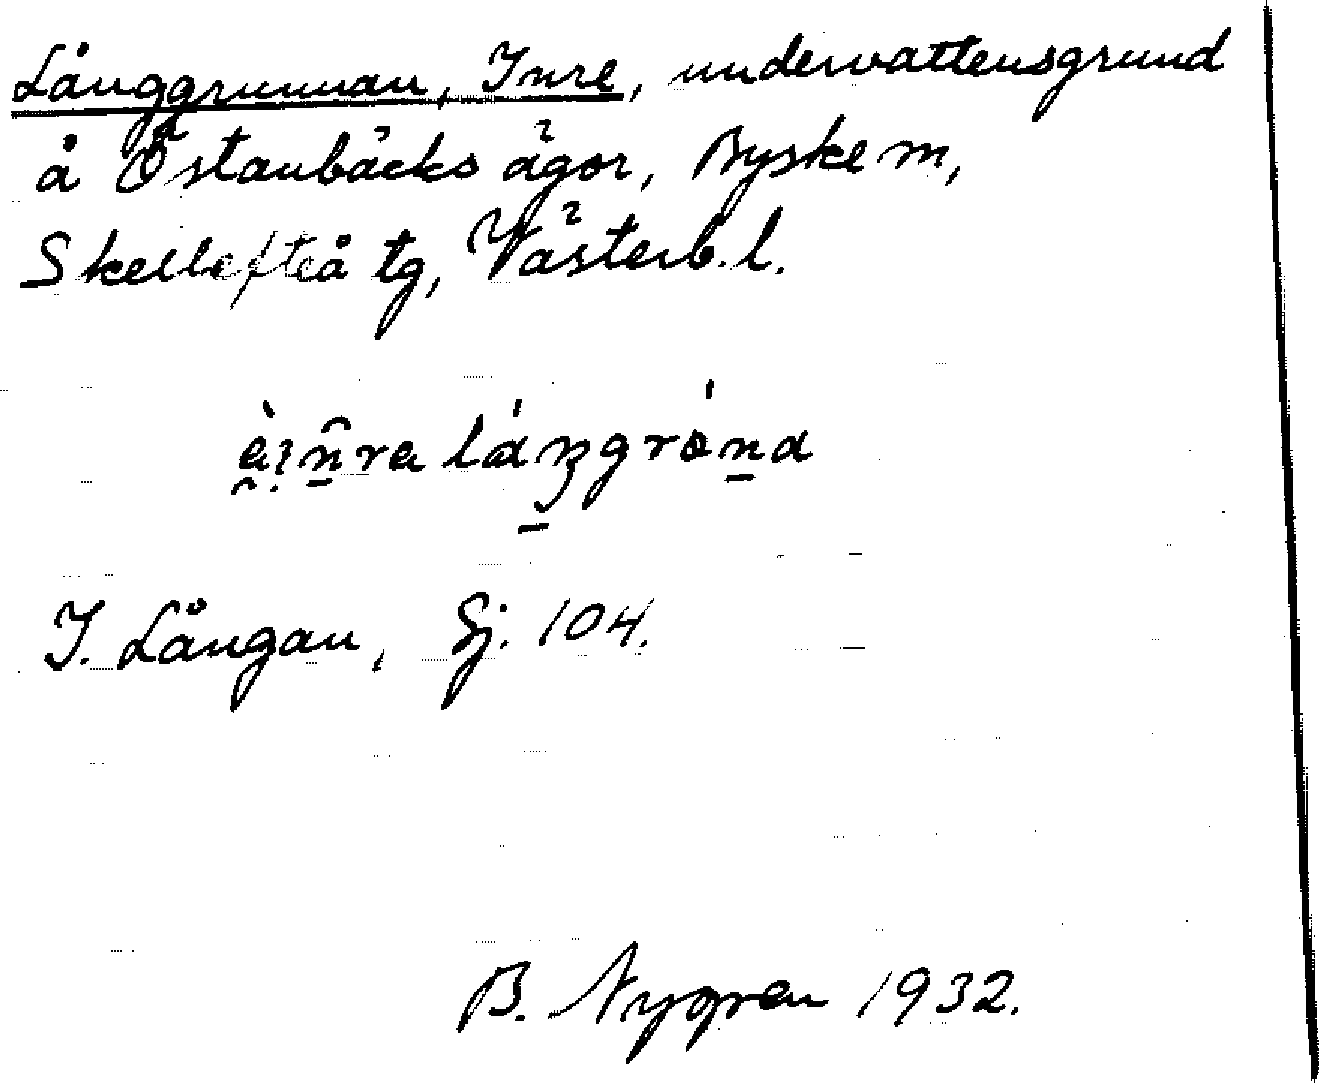 Långgrunnan, Inre, undervattensgrund
å Östanbäcks ägor, Byske sn,
Skellefteå tg, Västerb. l.
I. Långan, Sj. 104.
B. Nygren 1932.